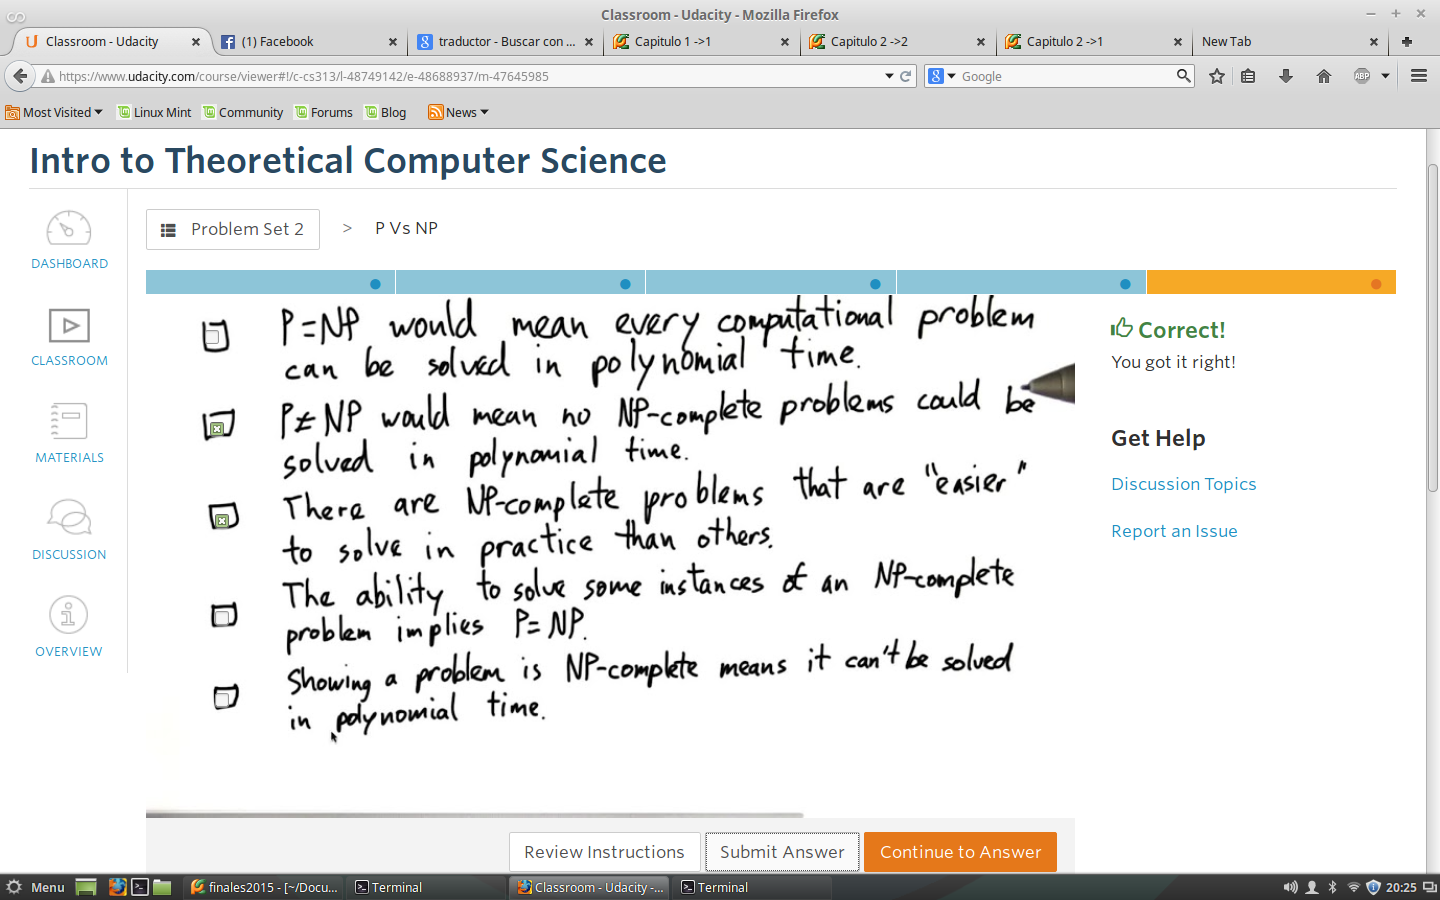 Classroom - Udacity - Mozilla Firefox
Classroom - Udacity
(1) Facebook
traductor - Buscar con ...
Capitulo 1 ->1
Capitulo 2 ->2
Capitulo 2 ->1
New Tab
https://www.udacity.com/course/viewer#!/c-cs313/l-48749142/e-48688937/m-47645985
Google
ABP
Most Visited
Linux Mint
Community
Forums
Blog
News
Intro to Theoretical Computer Science
DASHBOARD
CLASSROOM
MATERIALS
DISCUSSION
OVERVIEW
Problem Set 2 > P Vs NP
P=NP would mean every computational problem
can be solved in polynomial time.
P≠NP would mean no NP-complete problems could be
solved in polynomial time.
There are NP-complete problems that are "easier"
to solve in practice than others.
The ability to solve some instances of an NP-complete
problem implies P=NP.
Showing a problem is NP-complete means it can't be solved
in polynomial time.
Correct!
You got it right!
Get Help
Discussion Topics
Report an Issue
Review Instructions
Submit Answer
Continue to Answer
Menu
finales2015 - [~/Docu...
Terminal
Classroom - Udacity -...
Terminal
20:25